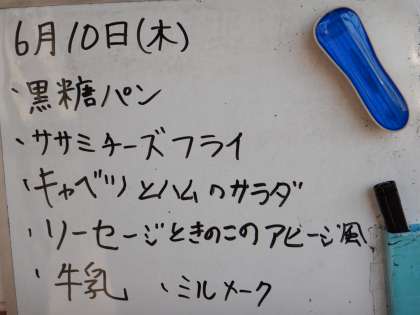 6月10日(木)
、黒糖パン
、ササミチーズフライ
、キャベツとハムのサラダ
、ソーセージときのこのアヒージョ風
、牛乳 、ミルメーク